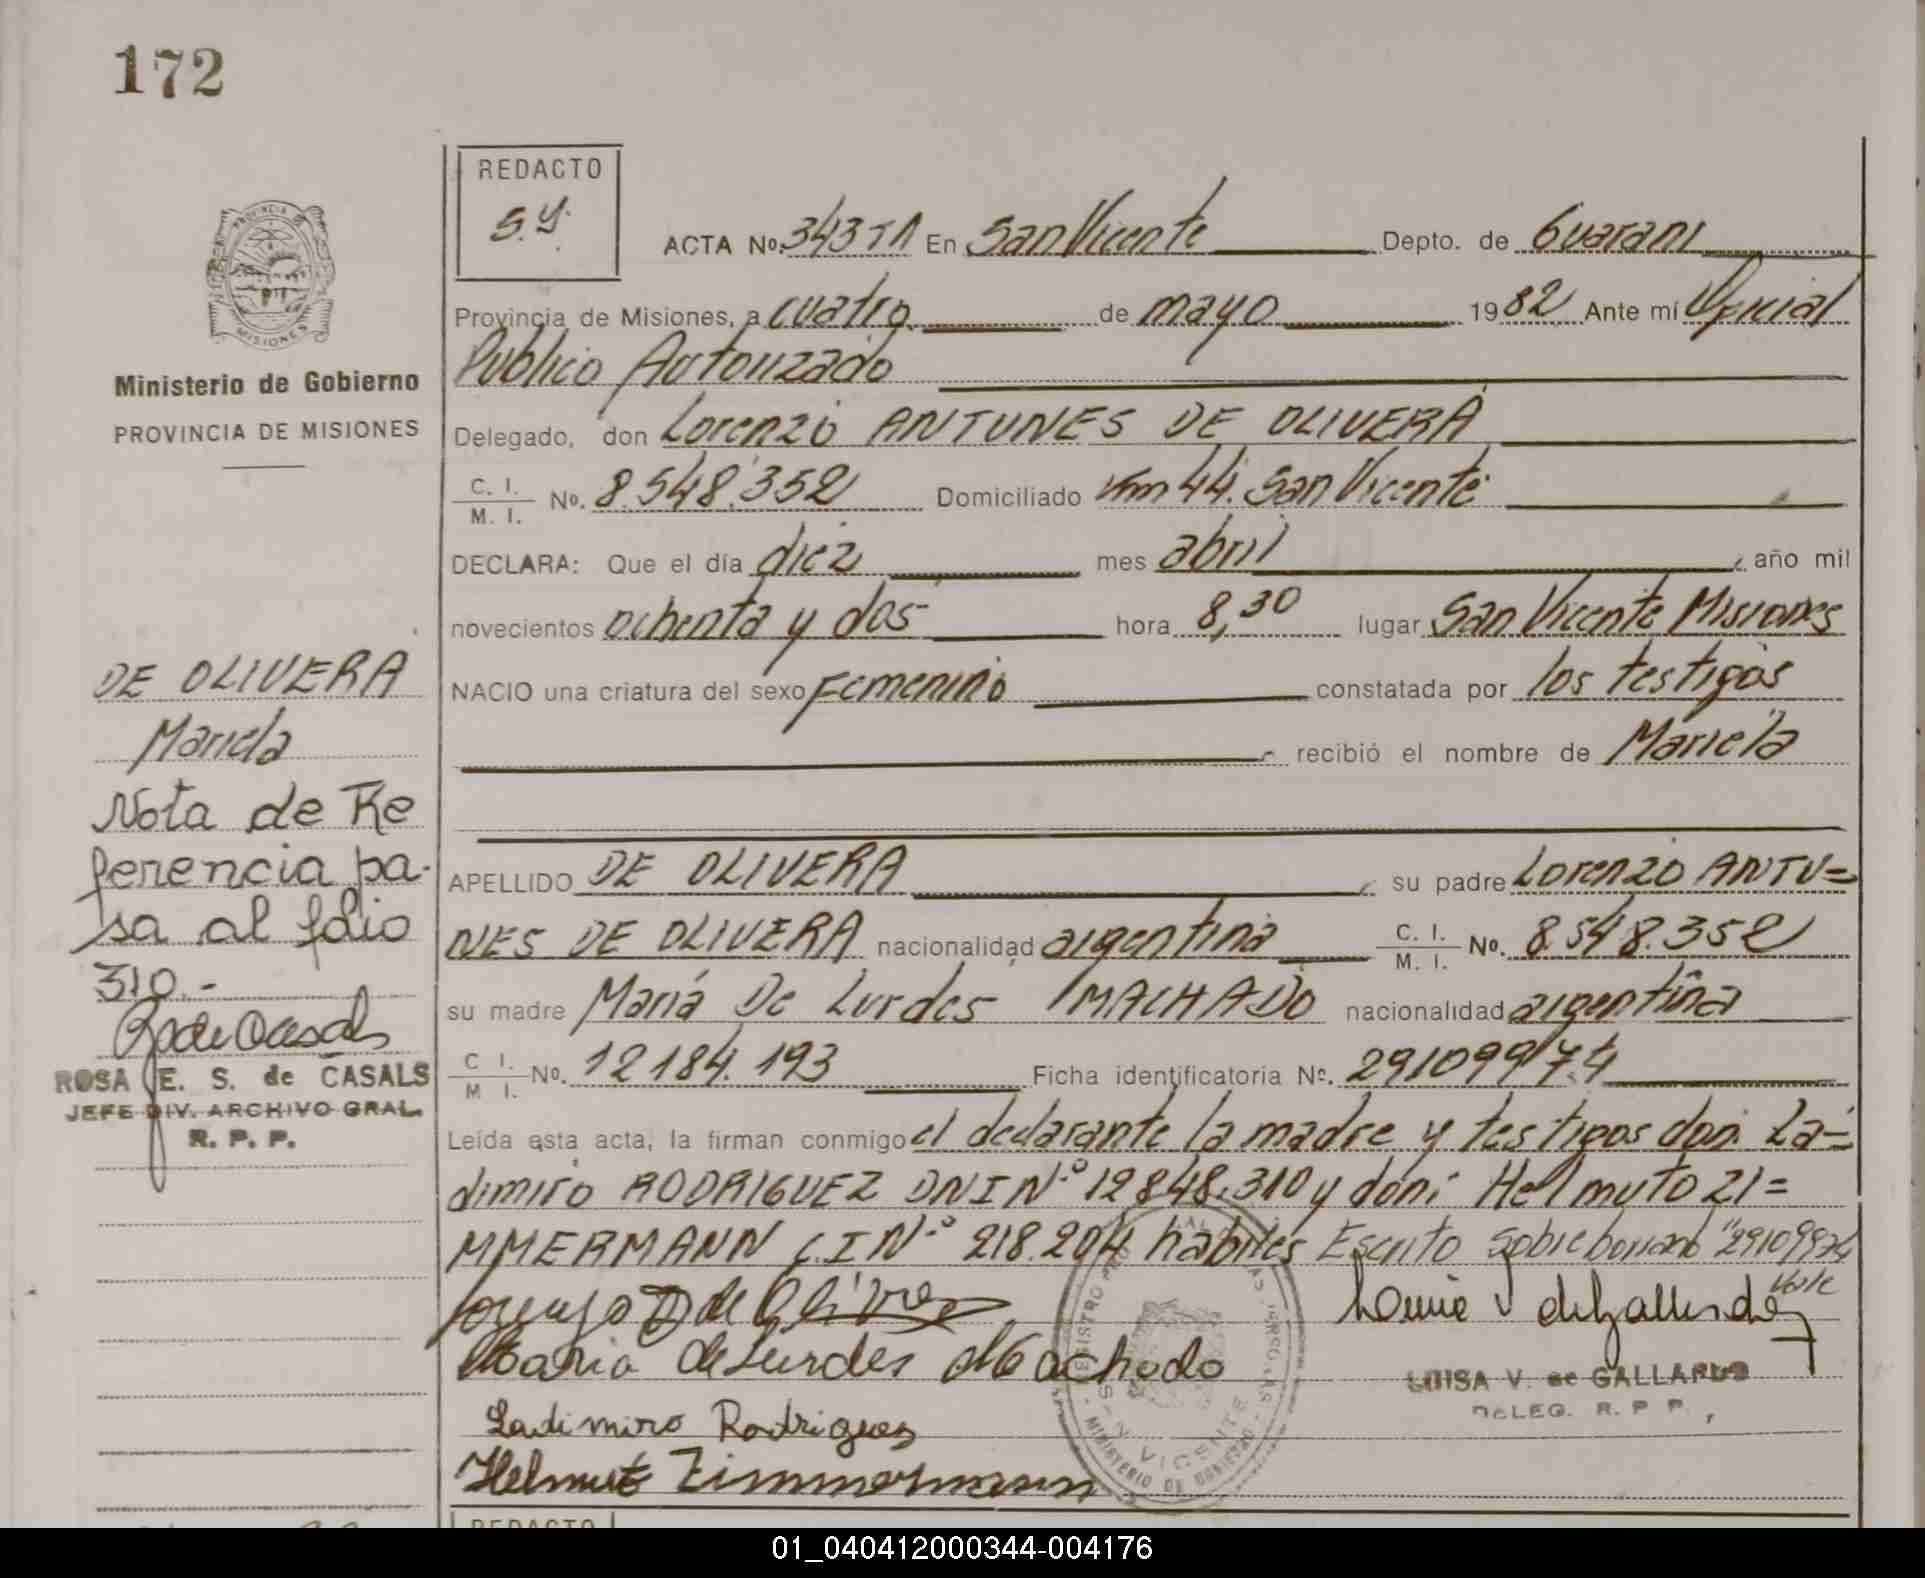 172
REDACTO
S.Y.
ACTA No. 343 T1 En San Vicente Depto. de Guarani
Provincia de Misiones, a cuatro de mayo 1982 Ante mí Oficial
Publico Autorizado
Delegado, don Lorenzo ANTUNES DE OLIVERA
C. I.
M. I. No. 8.548.352 Domiciliado Km 44. San Vicente
DECLARA: Que el día diez mes abril, año mil
novecientos ochenta y dos hora 8,30 lugar San Vicente Misiones
NACIO una criatura del sexo Femenino constatada por los testigos
recibió el nombre de Mariela
APELLIDO DE OLIVERA, su padre Lorenzo ANTU=
NES DE OLIVERA nacionalidad argentina C. I. M. I. No. 8.548.352
su madre María De Lurdes MACHADO nacionalidad argentina
C I. M I. No. 12184.193 Ficha identificatoria No. 29109974
Leída esta acta, la firman conmigo el declarante la madre y testigos don: La=
dimiro RODRIGUEZ DNI Nº 12848.310 y don: Helmuto ZI=
MMERMANN C.I Nº 218.204 habiles Escrito sobreborrado "29109974
Vale
Maria de Lurdes Machado
Ladimiro Rodrigues
Helmut Zimmermann
LUISA V. de GALLARDO
DELEG. R. P P.
REGISTRO
MINISTERIO DE GOBIERNO
VICENTE
PROVINCIA DE
MISIONES
Ministerio de Gobierno
PROVINCIA DE MISIONES
DE OLIVERA
Mariela
Nota de Re
ferencia pa-
sa al folio
310.-
R de Casals
ROSA E. S. de CASALS
JEFE DIV. ARCHIVO GRAL.
R. P. P.
REDACTO
01_040412000344-004176